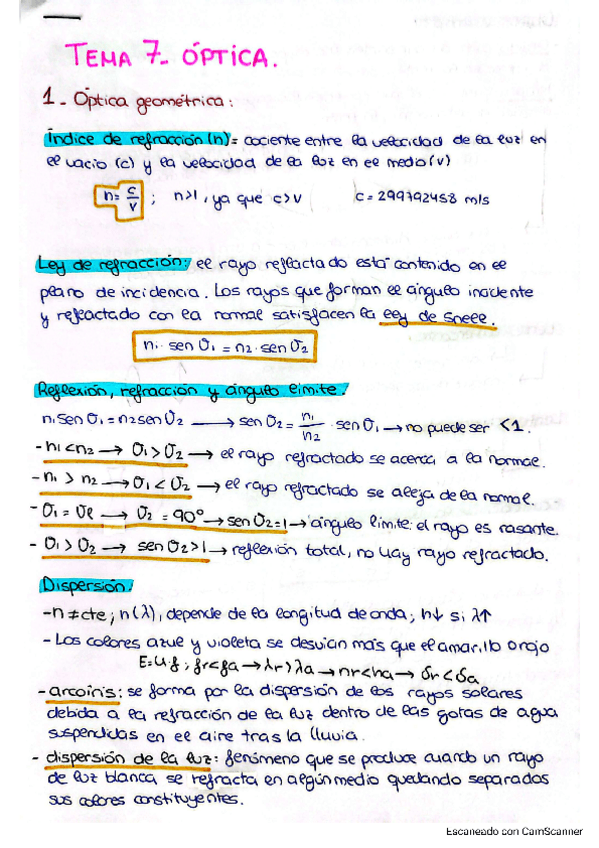 TEMA 7_ ÓPTICA.
1_ Óptica geométrica:
Índice de refracción (n)= cociente entre la velocidad de la luz en
el vacío (c) y la velocidad de la luz en el medio (v)
n = c/v ; n>1, ya que c>v c = 299792458 m/s
Ley de refracción: el rayo reflactado está contenido en el
plano de incidencia. Los rayos que forman el ángulo incidente
y refractado con la normal satisfacen la ley de Snell.
n₁ · sen θ₁ = n₂ · sen θ₂
Reflexión, refracción y ángulo límite.
n₁ sen θ₁ = n₂ sen θ₂ → sen θ₂ = n₁/n₂ · sen θ₁ → no puede ser <1.
- n₁ < n₂ → θ₁ > θ₂ → el rayo refractado se acerca a la normal.
- n₁ > n₂ → θ₁ < θ₂ → el rayo refractado se aleja de la normal.
- θ₁ = θl → θ₂ = 90° → sen θ₂ = 1 → ángulo límite: el rayo es rasante.
- θ₁ > θ₂ → sen θ₂ > 1 → reflexión total, no hay rayo refractado.
Dispersión.
- n ≠ cte; n(λ), depende de la longitud de onda; n↓ si λ↑
- Los colores azul y violeta se desvían más que el amarillo o rojo
E=h·f; fr<fa → λr>λa → nr<na → δr<δa
- arcoiris: se forma por la dispersión de los rayos solares
debida a la refracción de la luz dentro de las gotas de agua
suspendidas en el aire tras la lluvia.
- dispersión de la luz: fenómeno que se produce cuando un rayo
de luz blanca se refracta en algún medio quedando separados
sus colores constituyentes.
Escaneado con CamScanner